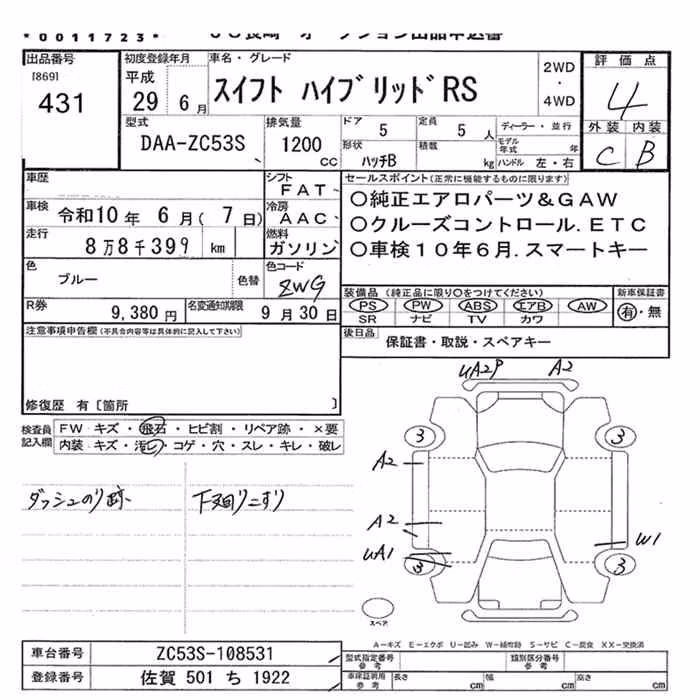 *0011723*
出品番号
[869]
431
初度登録年月
平成
29 6月
車名・グレード
スイフト ハイブリッドRS
2WD
・
4WD
評価点
4
外装 内装
C B
型式
DAA-ZC53S
排気量
1200
cc
ドア 5
定員 5 人
形状
ハッチB
積載
kg
ディーラー・並行
モデル年式 年
ハンドル 左・右
車歴
シフト
FAT
車検 令和10年 6月( 7日)
冷房
AAC
走行
8万8千399 km
燃料
ガソリン
色
ブルー
色替
色コード
ZWG
R券 9,380円
名変通知期限
9月30日
セールスポイント(正常に機能するものに限ります)
○純正エアロパーツ&GAW
○クルーズコントロール.ETC
○車検10年6月.スマートキー
装備品 (純正品に限り○をつけてください)
PS PW ABS エアB AW
SR ナビ TV カワ
新車保証書
有・無
後日品
保証書・取説・スペアキー
注意事項申告欄(不具合内容等は具体的に記入して下さい)
修復歴 有 [箇所 ]
検査員
記入欄
FW キズ・飛石・ヒビ割・リペア跡・×要
内装 キズ・汚レ・コゲ・穴・スレ・キレ・破レ
ダッシュのり跡
下廻りこすり
UA2P A2
3 3
A2
A2
UA1 W1
3 3
スペア
A-キズ E-エクボ U-凹み W-補修跡 S-サビ C-腐食 XX-交換済
車台番号 ZC53S-108531
登録番号 佐賀 501 ち 1922
型式指定番号
参考
類別区分番号
参考
車庫証明用
参考
長さ cm
幅 cm
高さ cm